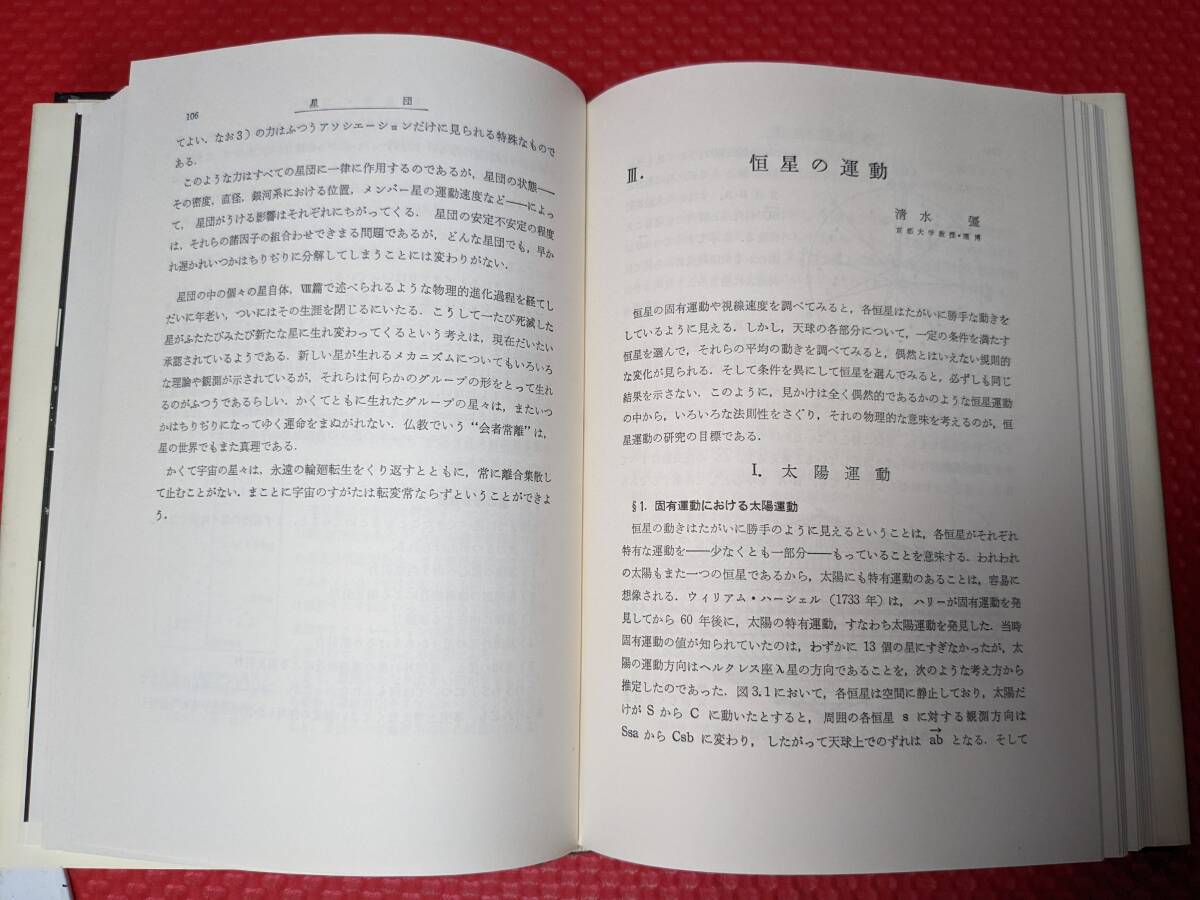 106
星団
てよい．なお3）の力はふつうアソシエーションだけに見られる特殊なもので
ある．
このような力はすべての星団に一律に作用するのであるが，星団の状態——
その密度，直径，銀河系における位置，メンバー星の運動速度など——によっ
て，星団がうける影響はそれぞれにちがってくる．星団の安定不安定の程度
は，それらの諸因子の組合わせできまる問題であるが，どんな星団でも，早か
れ遅かれいつかはちりぢりに分解してしまうことには変わりがない．
星団の中の個々の星自体，Ⅷ篇で述べられるような物理的進化過程を経てし
だいに年老い，ついにはその生涯を閉じるにいたる．こうして一たび死滅した
星がふたたびみたび新たな星に生れ変わってくるという考えは，現在だいたい
承認されているようである．新しい星が生れるメカニズムについてもいろいろ
な理論や観測が示されているが，それらは何らかのグループの形をとって生れ
るのがふつうであるらしい．かくてともに生れたグループの星々は，またいつ
かはちりぢりになってゆく運命をまぬがれない．仏教でいう“会者常離”は，
星の世界でもまた真理である．
かくて宇宙の星々は，永遠の輪廻転生をくり返すとともに，常に離合集散し
て止むことがない．まことに宇宙のすがたは転変常ならずということができよ
う．
Ⅲ．恒星の運動
清水彊
京都大学教授・理博
恒星の固有運動や視線速度を調べてみると，各恒星はたがいに勝手な動きを
しているように見える．しかし，天球の各部分について，一定の条件を満たす
恒星を選んで，それらの平均の動きを調べてみると，偶然とはいえない規則的
な変化が見られる．そして条件を異にして恒星を選んでみると，必ずしも同じ
結果を示さない．このように，見かけは全く偶然的であるかのような恒星運動
の中から，いろいろな法則性をさぐり，それの物理的な意味を考えるのが，恒
星運動の研究の目標である．
Ⅰ．太陽運動
§1．固有運動における太陽運動
恒星の動きはたがいに勝手のように見えるということは，各恒星がそれぞれ
特有な運動を——少なくとも一部分——もっていることを意味する．われわれ
の太陽もまた一つの恒星であるから，太陽にも特有運動のあることは，容易に
想像される．ウィリアム・ハーシェル（1733年）は，ハリーが固有運動を発
見してから60年後に，太陽の特有運動，すなわち太陽運動を発見した．当時
固有運動の値が知られていたのは，わずかに13個の星にすぎなかったが，太
陽の運動方向はヘルクレス座λ星の方向であることを，次のような考え方から
推定したのであった．図3.1において，各恒星は空間に静止しており，太陽だ
けがSからCに動いたとすると，周囲の各恒星sに対する観測方向は
SsaからCsbに変わり，したがって天球上でのずれは→abとなる．そして